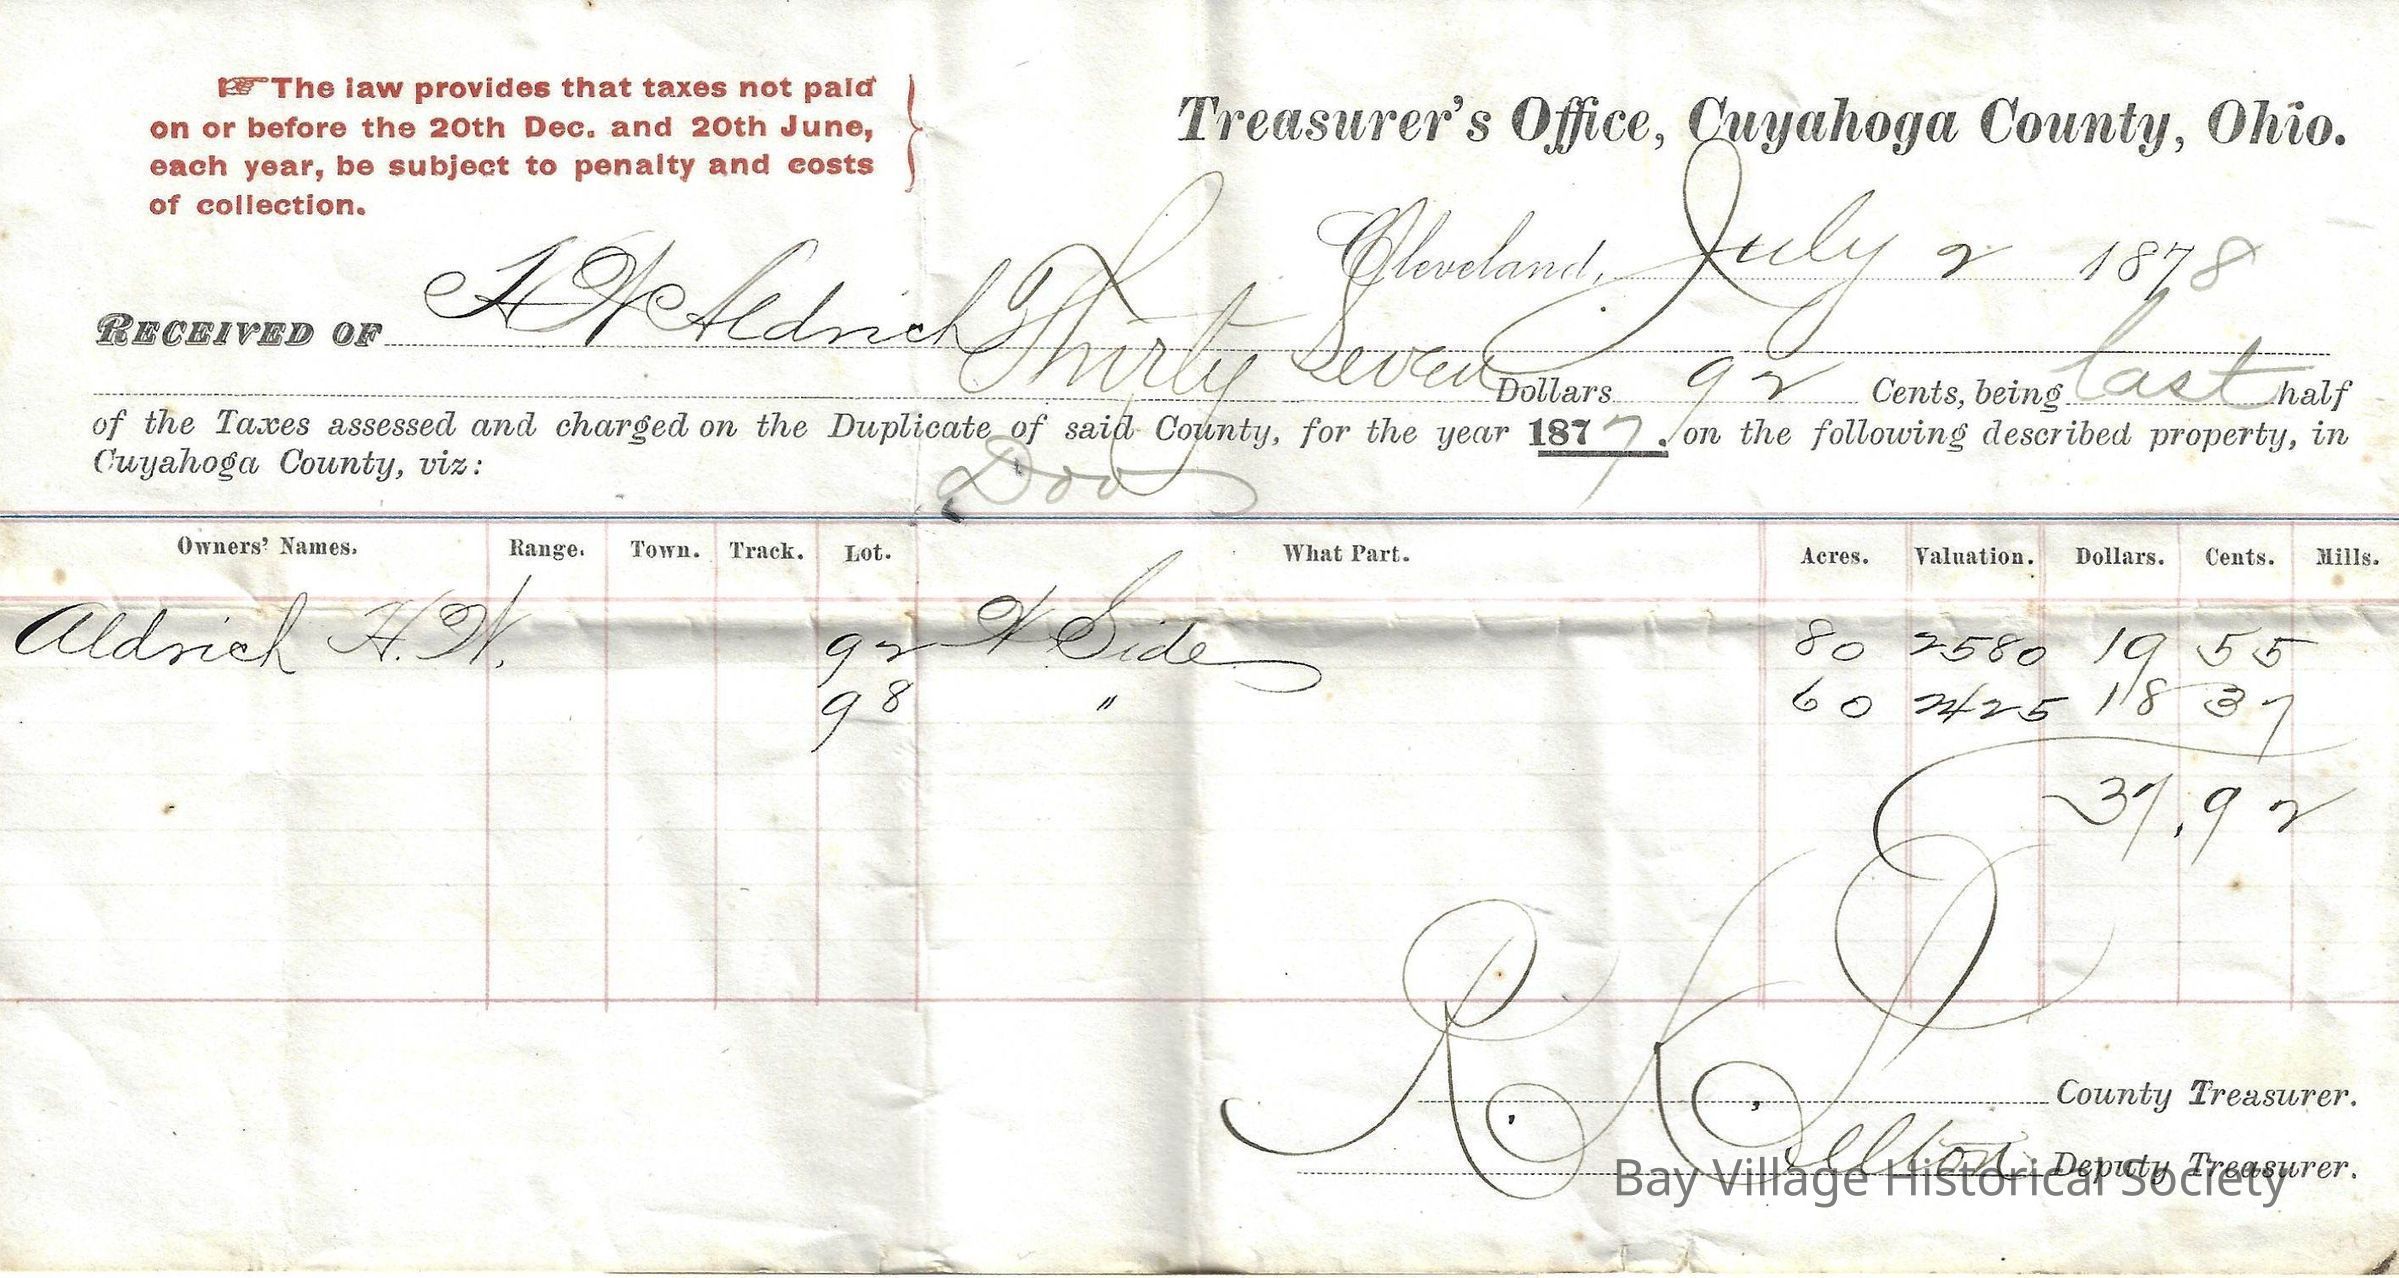 ☞The law provides that taxes not paid
on or before the 20th Dec. and 20th June,
each year, be subject to penalty and costs
of collection.
Treasurer's Office, Cuyahoga County, Ohio.
Cleveland, July 2 1878
RECEIVED OF H W Aldrich
Thirty Seven Dollars 92 Cents, being last half
of the Taxes assessed and charged on the Duplicate of said County, for the year 1877, on the following described property, in
Cuyahoga County, viz:
Dov
Owners' Names. Range. Town. Track. Lot. What Part. Acres. Valuation. Dollars. Cents. Mills.
Aldrich H. W. 92 W Side 80 2580 19 55
98 " 60 2425 18 37
37.92
County Treasurer.
Deputy Treasurer.
Bay Village Historical Society